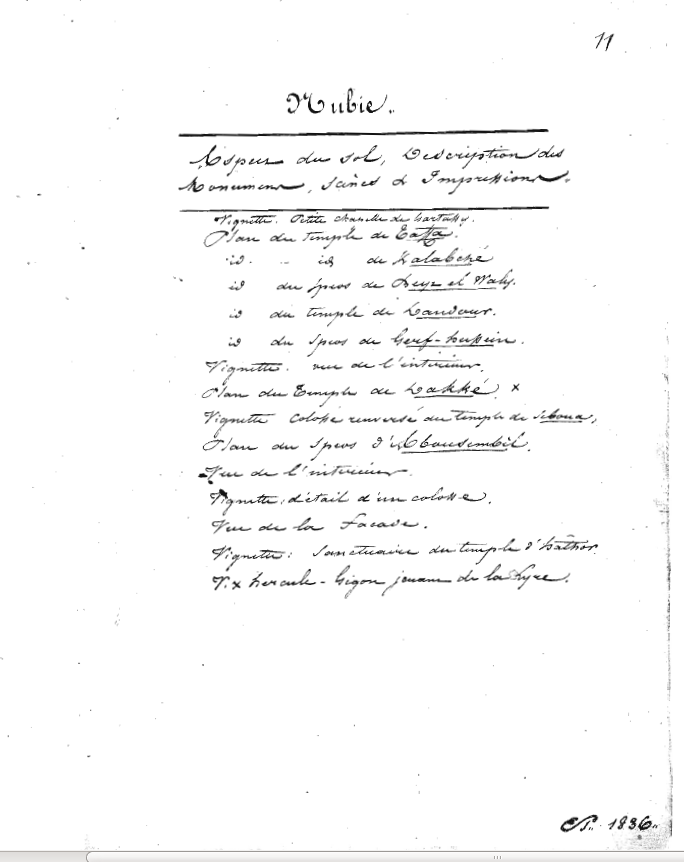 11
Nubie.
Aspect du sol, Description des
Monumens, Scènes & Impressions.
Vignette. Petite chapelle de hartassy.
Plan du temple de Taffa.
id. .. id de Kalabché
id du speos de Deyr el Waly.
id du temple de Dandour.
id du Speos de Gerf-hussein.
Vignette. vue de l'intérieur.
Plan du Temple de Dakké x
Vignette Colosse renversé du temple de Seboua,
Plan du Speos d'Abousembil.
Vue de l'intérieur.
Vignette: détail d'un colosse.
Vue de la Facade.
Vignette: Sanctuaire du temple d'hâthor.
V. x hercule-Gigon jouant de la Lyre.
1836.